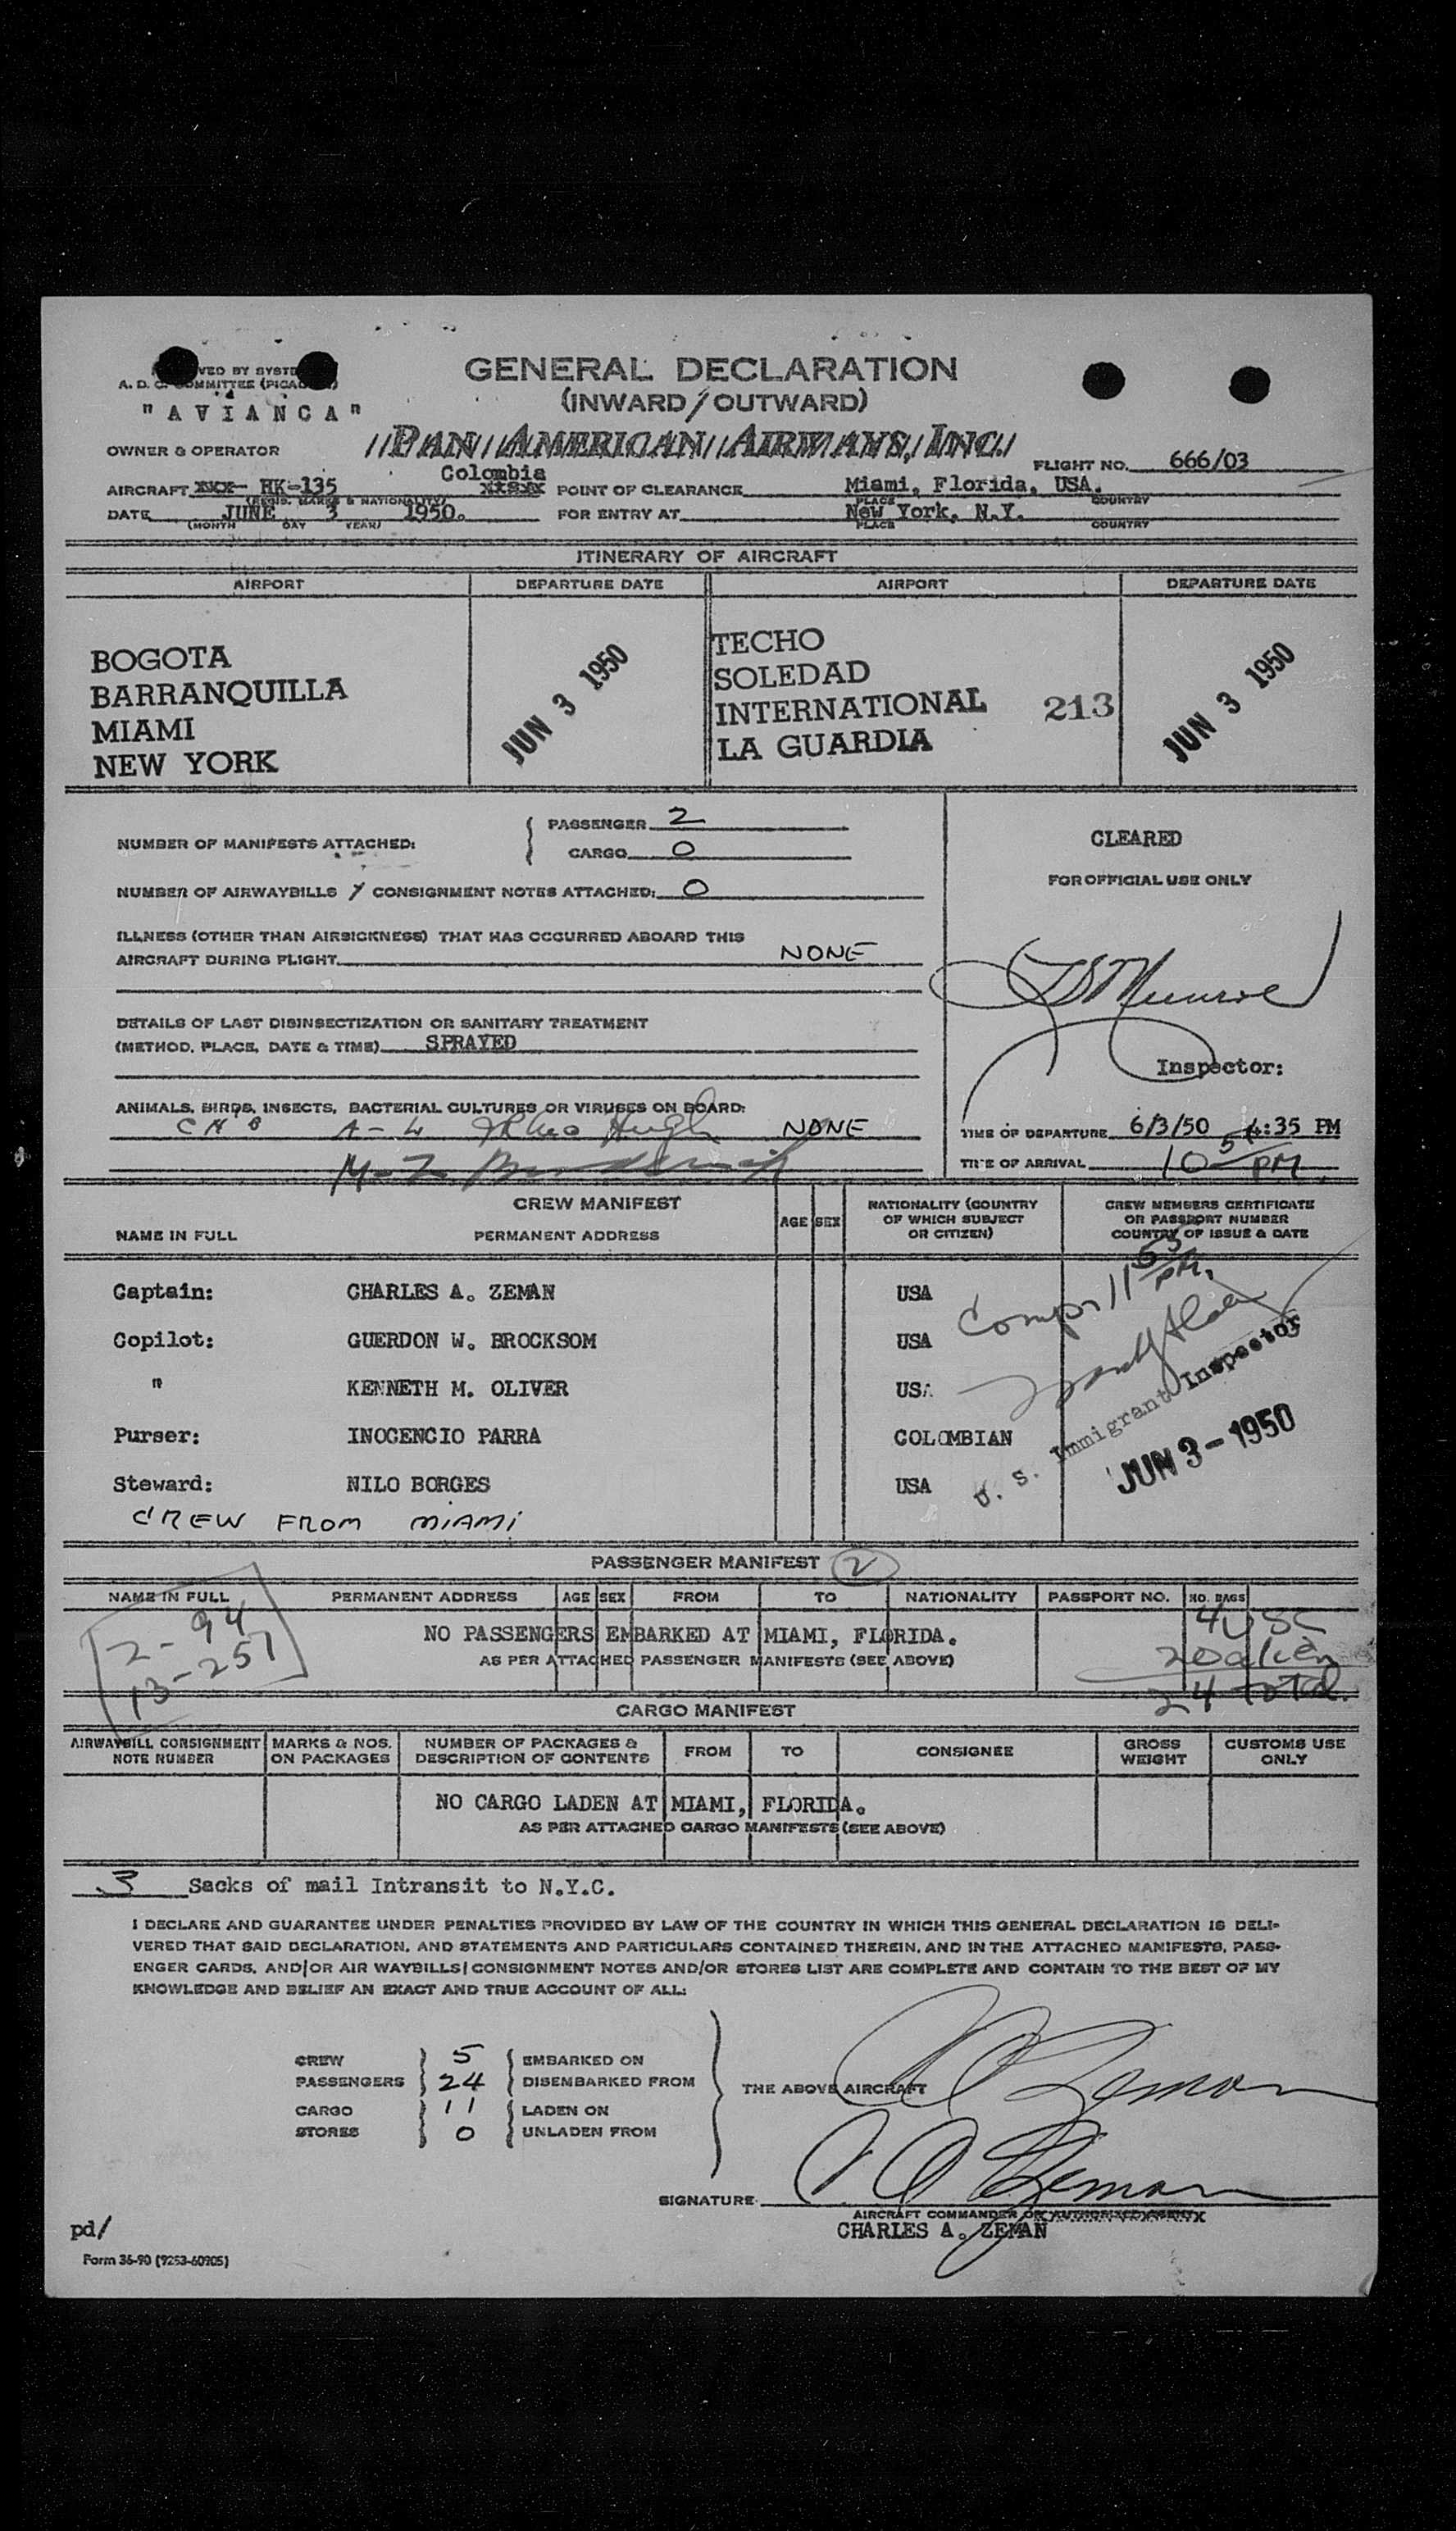 "AVIANCA"
GENERAL DECLARATION
(INWARD/OUTWARD)
OWNER & OPERATOR
PAN AMERICAN AIRWAYS, INC.
FLIGHT NO. 666/03
AIRCRAFT HK-135 Colombia
(REGIS. MARKS & NATIONALITY)
POINT OF CLEARANCE Miami, Florida, USA.
PLACE COUNTRY
DATE JUNE 3 1950.
(MONTH DAY YEAR)
FOR ENTRY AT New York, N.Y.
PLACE COUNTRY
ITINERARY OF AIRCRAFT
AIRPORT DEPARTURE DATE AIRPORT DEPARTURE DATE
BOGOTA TECHO
BARRANQUILLA SOLEDAD
MIAMI INTERNATIONAL 213
NEW YORK LA GUARDIA
JUN 3 1950 JUN 3 1950
NUMBER OF MANIFESTS ATTACHED: PASSENGER 2
CARGO 0
CLEARED
NUMBER OF AIRWAYBILLS / CONSIGNMENT NOTES ATTACHED: 0
FOR OFFICIAL USE ONLY
ILLNESS (OTHER THAN AIRSICKNESS) THAT HAS OCCURRED ABOARD THIS
AIRCRAFT DURING FLIGHT NONE
DETAILS OF LAST DISINSECTIZATION OR SANITARY TREATMENT
(METHOD, PLACE, DATE & TIME) SPRAYED
Inspector:
ANIMALS, BIRDS, INSECTS, BACTERIAL CULTURES OR VIRUSES ON BOARD:
NONE
TIME OF DEPARTURE 6/3/50 4:35 PM
TIME OF ARRIVAL 10 PM
CREW MANIFEST
NAME IN FULL PERMANENT ADDRESS AGE SEX
NATIONALITY (COUNTRY
OF WHICH SUBJECT
OR CITIZEN)
CREW MEMBERS CERTIFICATE
OR PASSPORT NUMBER
COUNTRY OF ISSUE & DATE
Captain: CHARLES A. ZEMAN USA
Copilot: GUERDON W. BROCKSOM USA
" KENNETH M. OLIVER USA
Purser: INOCENCIO PARRA COLOMBIAN
Steward: NILO BORGES USA
U. S. Immigrant Inspector
JUN 3-1950
CREW FROM MIAMI
PASSENGER MANIFEST 2
NAME IN FULL PERMANENT ADDRESS AGE SEX FROM TO NATIONALITY PASSPORT NO. NO. BAGS
2-94
13-257
NO PASSENGERS EMBARKED AT MIAMI, FLORIDA.
AS PER ATTACHED PASSENGER MANIFESTS (SEE ABOVE)
4 USC
20 alien
24 total
CARGO MANIFEST
AIRWAYBILL CONSIGNMENT
NOTE NUMBER
MARKS & NOS.
ON PACKAGES
NUMBER OF PACKAGES &
DESCRIPTION OF CONTENTS
FROM TO CONSIGNEE
GROSS
WEIGHT
CUSTOMS USE
ONLY
NO CARGO LADEN AT MIAMI, FLORIDA.
AS PER ATTACHED CARGO MANIFESTS (SEE ABOVE)
3 Sacks of mail Intransit to N.Y.C.
I DECLARE AND GUARANTEE UNDER PENALTIES PROVIDED BY LAW OF THE COUNTRY IN WHICH THIS GENERAL DECLARATION IS DELI-
VERED THAT SAID DECLARATION, AND STATEMENTS AND PARTICULARS CONTAINED THEREIN, AND IN THE ATTACHED MANIFESTS, PASS-
ENGER CARDS, AND/OR AIR WAYBILLS/CONSIGNMENT NOTES AND/OR STORES LIST ARE COMPLETE AND CONTAIN TO THE BEST OF MY
KNOWLEDGE AND BELIEF AN EXACT AND TRUE ACCOUNT OF ALL:
CREW 5 EMBARKED ON
PASSENGERS 24 DISEMBARKED FROM
CARGO 11 LADEN ON
STORES 0 UNLADEN FROM
THE ABOVE AIRCRAFT
SIGNATURE
AIRCRAFT COMMANDER OR AUTHORIZED AGENT
CHARLES A. ZEMAN
pd/
Form 36-90 (9253-60905)